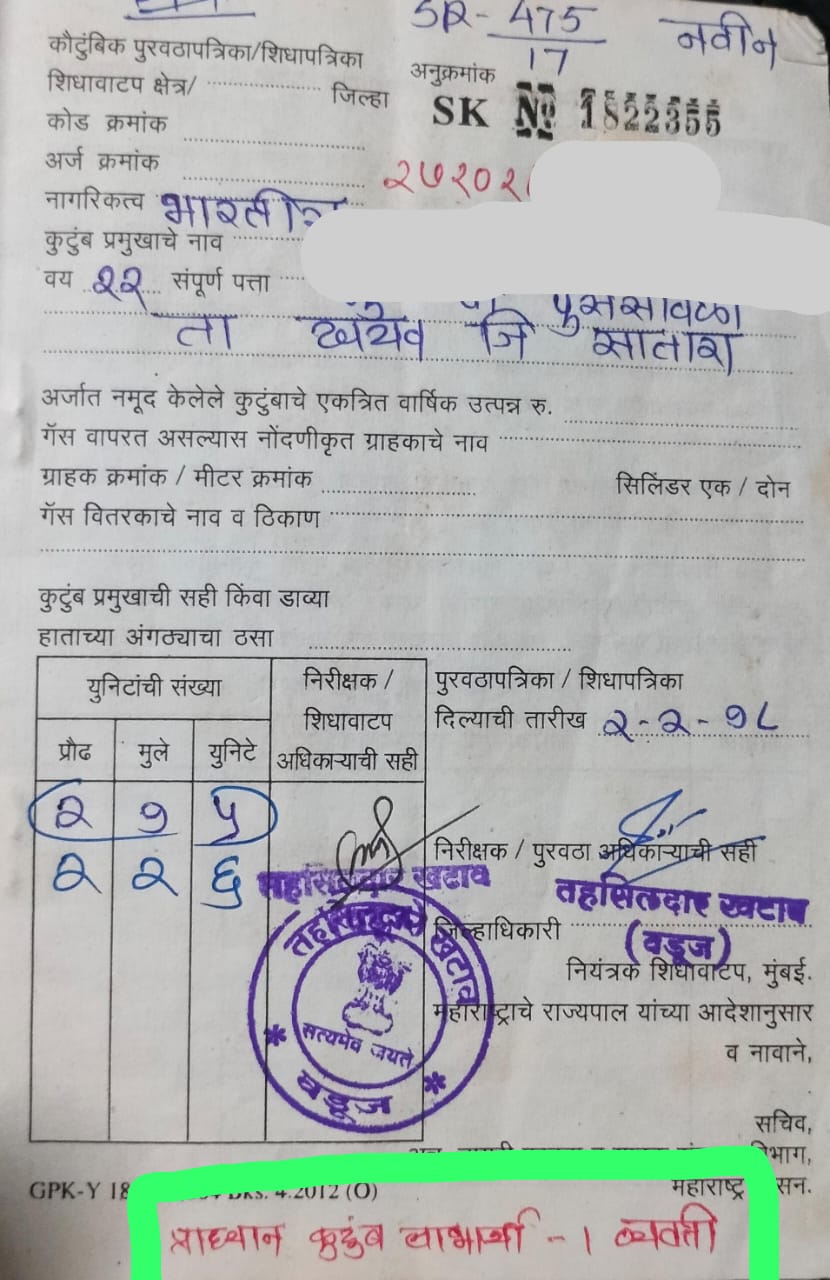 SR-475/17 नवीन
कौटुंबिक पुरवठापत्रिका/शिधापत्रिका
अनुक्रमांक
शिधावाटप क्षेत्र/ जिल्हा
SK № 1822355
कोड क्रमांक
अर्ज क्रमांक
२७२०२
नागरिकत्व भारतीय
कुटुंब प्रमुखाचे नाव
वय २२ संपूर्ण पत्ता
पुसेसावळी
ता खटाव जि सातारा
अर्जात नमूद केलेले कुटुंबाचे एकत्रित वार्षिक उत्पन्न रु.
गॅस वापरत असल्यास नोंदणीकृत ग्राहकाचे नाव
ग्राहक क्रमांक / मीटर क्रमांक सिलिंडर एक / दोन
गॅस वितरकाचे नाव व ठिकाण
कुटुंब प्रमुखाची सही किंवा डाव्या
हाताच्या अंगठ्याचा ठसा
युनिटांची संख्या
प्रौढ मुले युनिटे
निरीक्षक /
शिधावाटप
अधिकाऱ्याची सही
२ १ ५
२ २ ६
पुरवठापत्रिका / शिधापत्रिका
दिल्याची तारीख २-२-१८
निरीक्षक / पुरवठा अधिकाऱ्याची सही
तहसिलदार खटाव
तहसिलदार खटाव
(वडूज)
जिल्हाधिकारी
तहसिलदार खटाव
सत्यमेव जयते
वडूज
नियंत्रक शिधावाटप, मुंबई.
महाराष्ट्राचे राज्यपाल यांच्या आदेशानुसार
व नावाने,
सचिव,
महाराष्ट्र
GPK-Y 18 Bks. 4.2012 (O)
प्राध्यान कुटुंब लाभार्थी - १ व्यक्ती